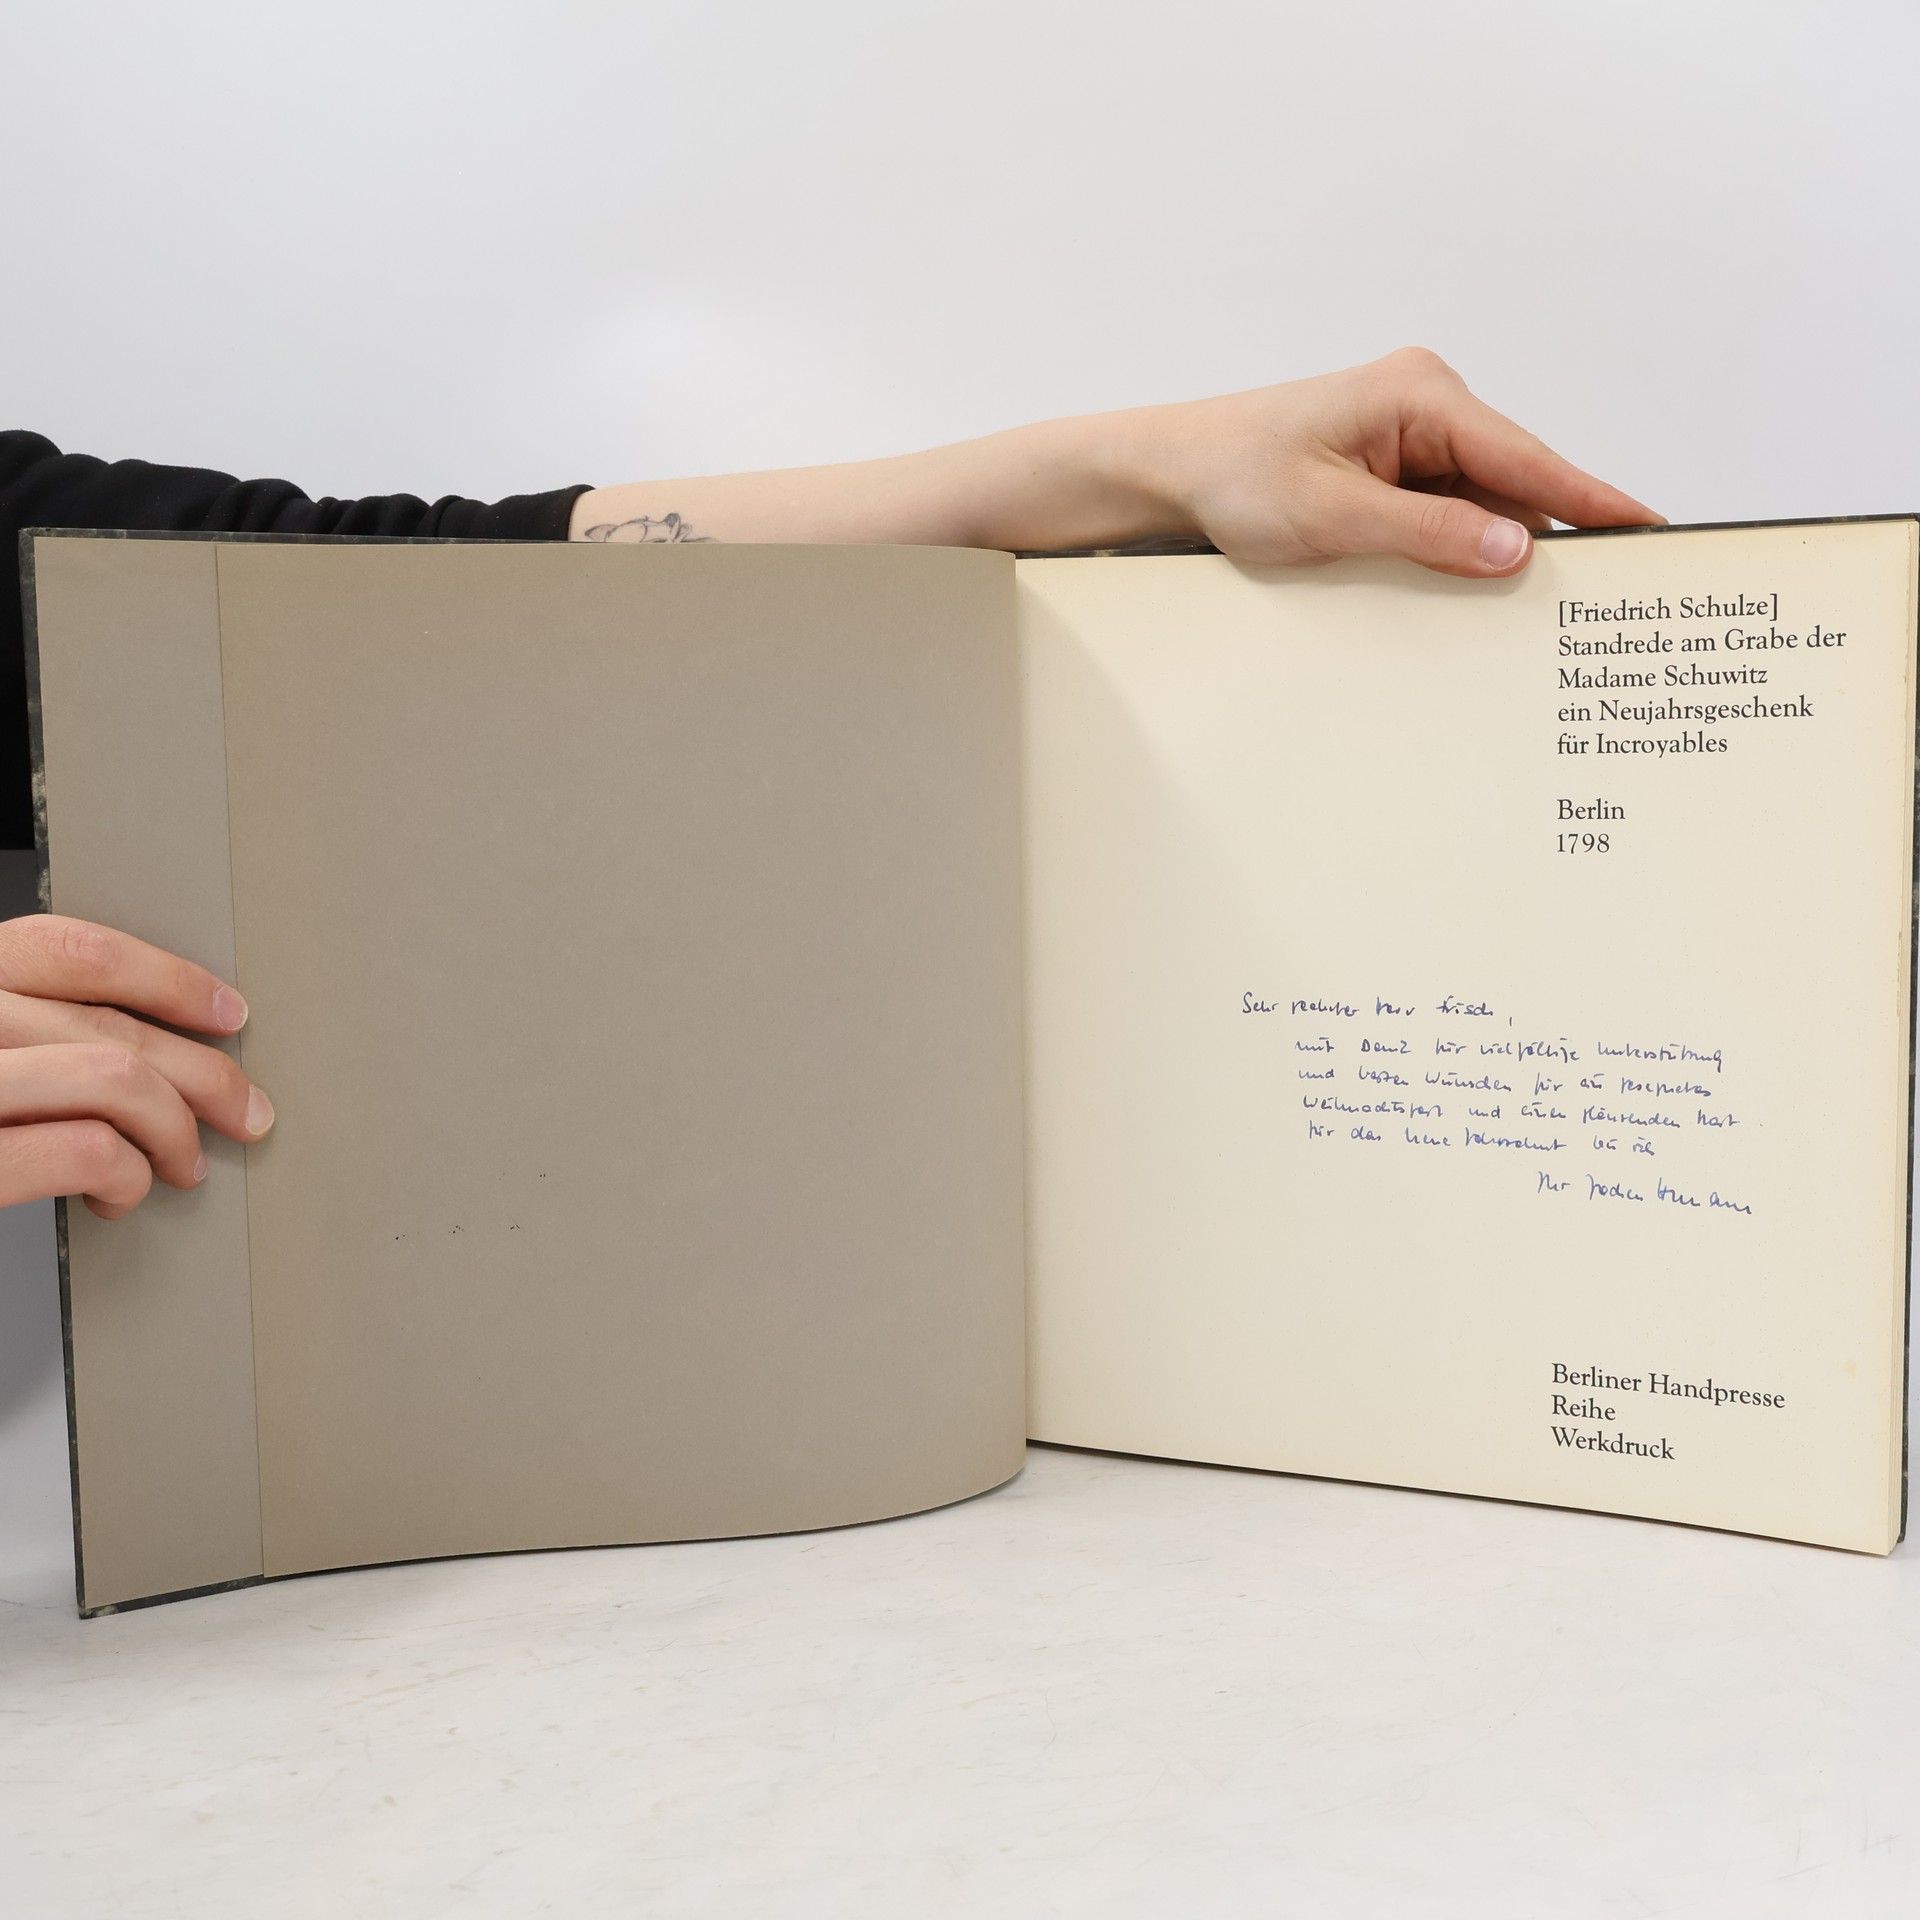 [Friedrich Schulze]
Standrede am Grabe der
Madame Schuwitz
ein Neujahrsgeschenk
für Incroyables
Berlin
1798
Sehr geehrter Herr Frisch,
mit Dank für vielfältige Unterstützung
und besten Wünschen für ein gesegnetes
Weihnachtsfest und einen glänzenden Start
für das neue Jahrzehnt bin ich
Ihr Jochen
Berliner Handpresse
Reihe
Werkdruck